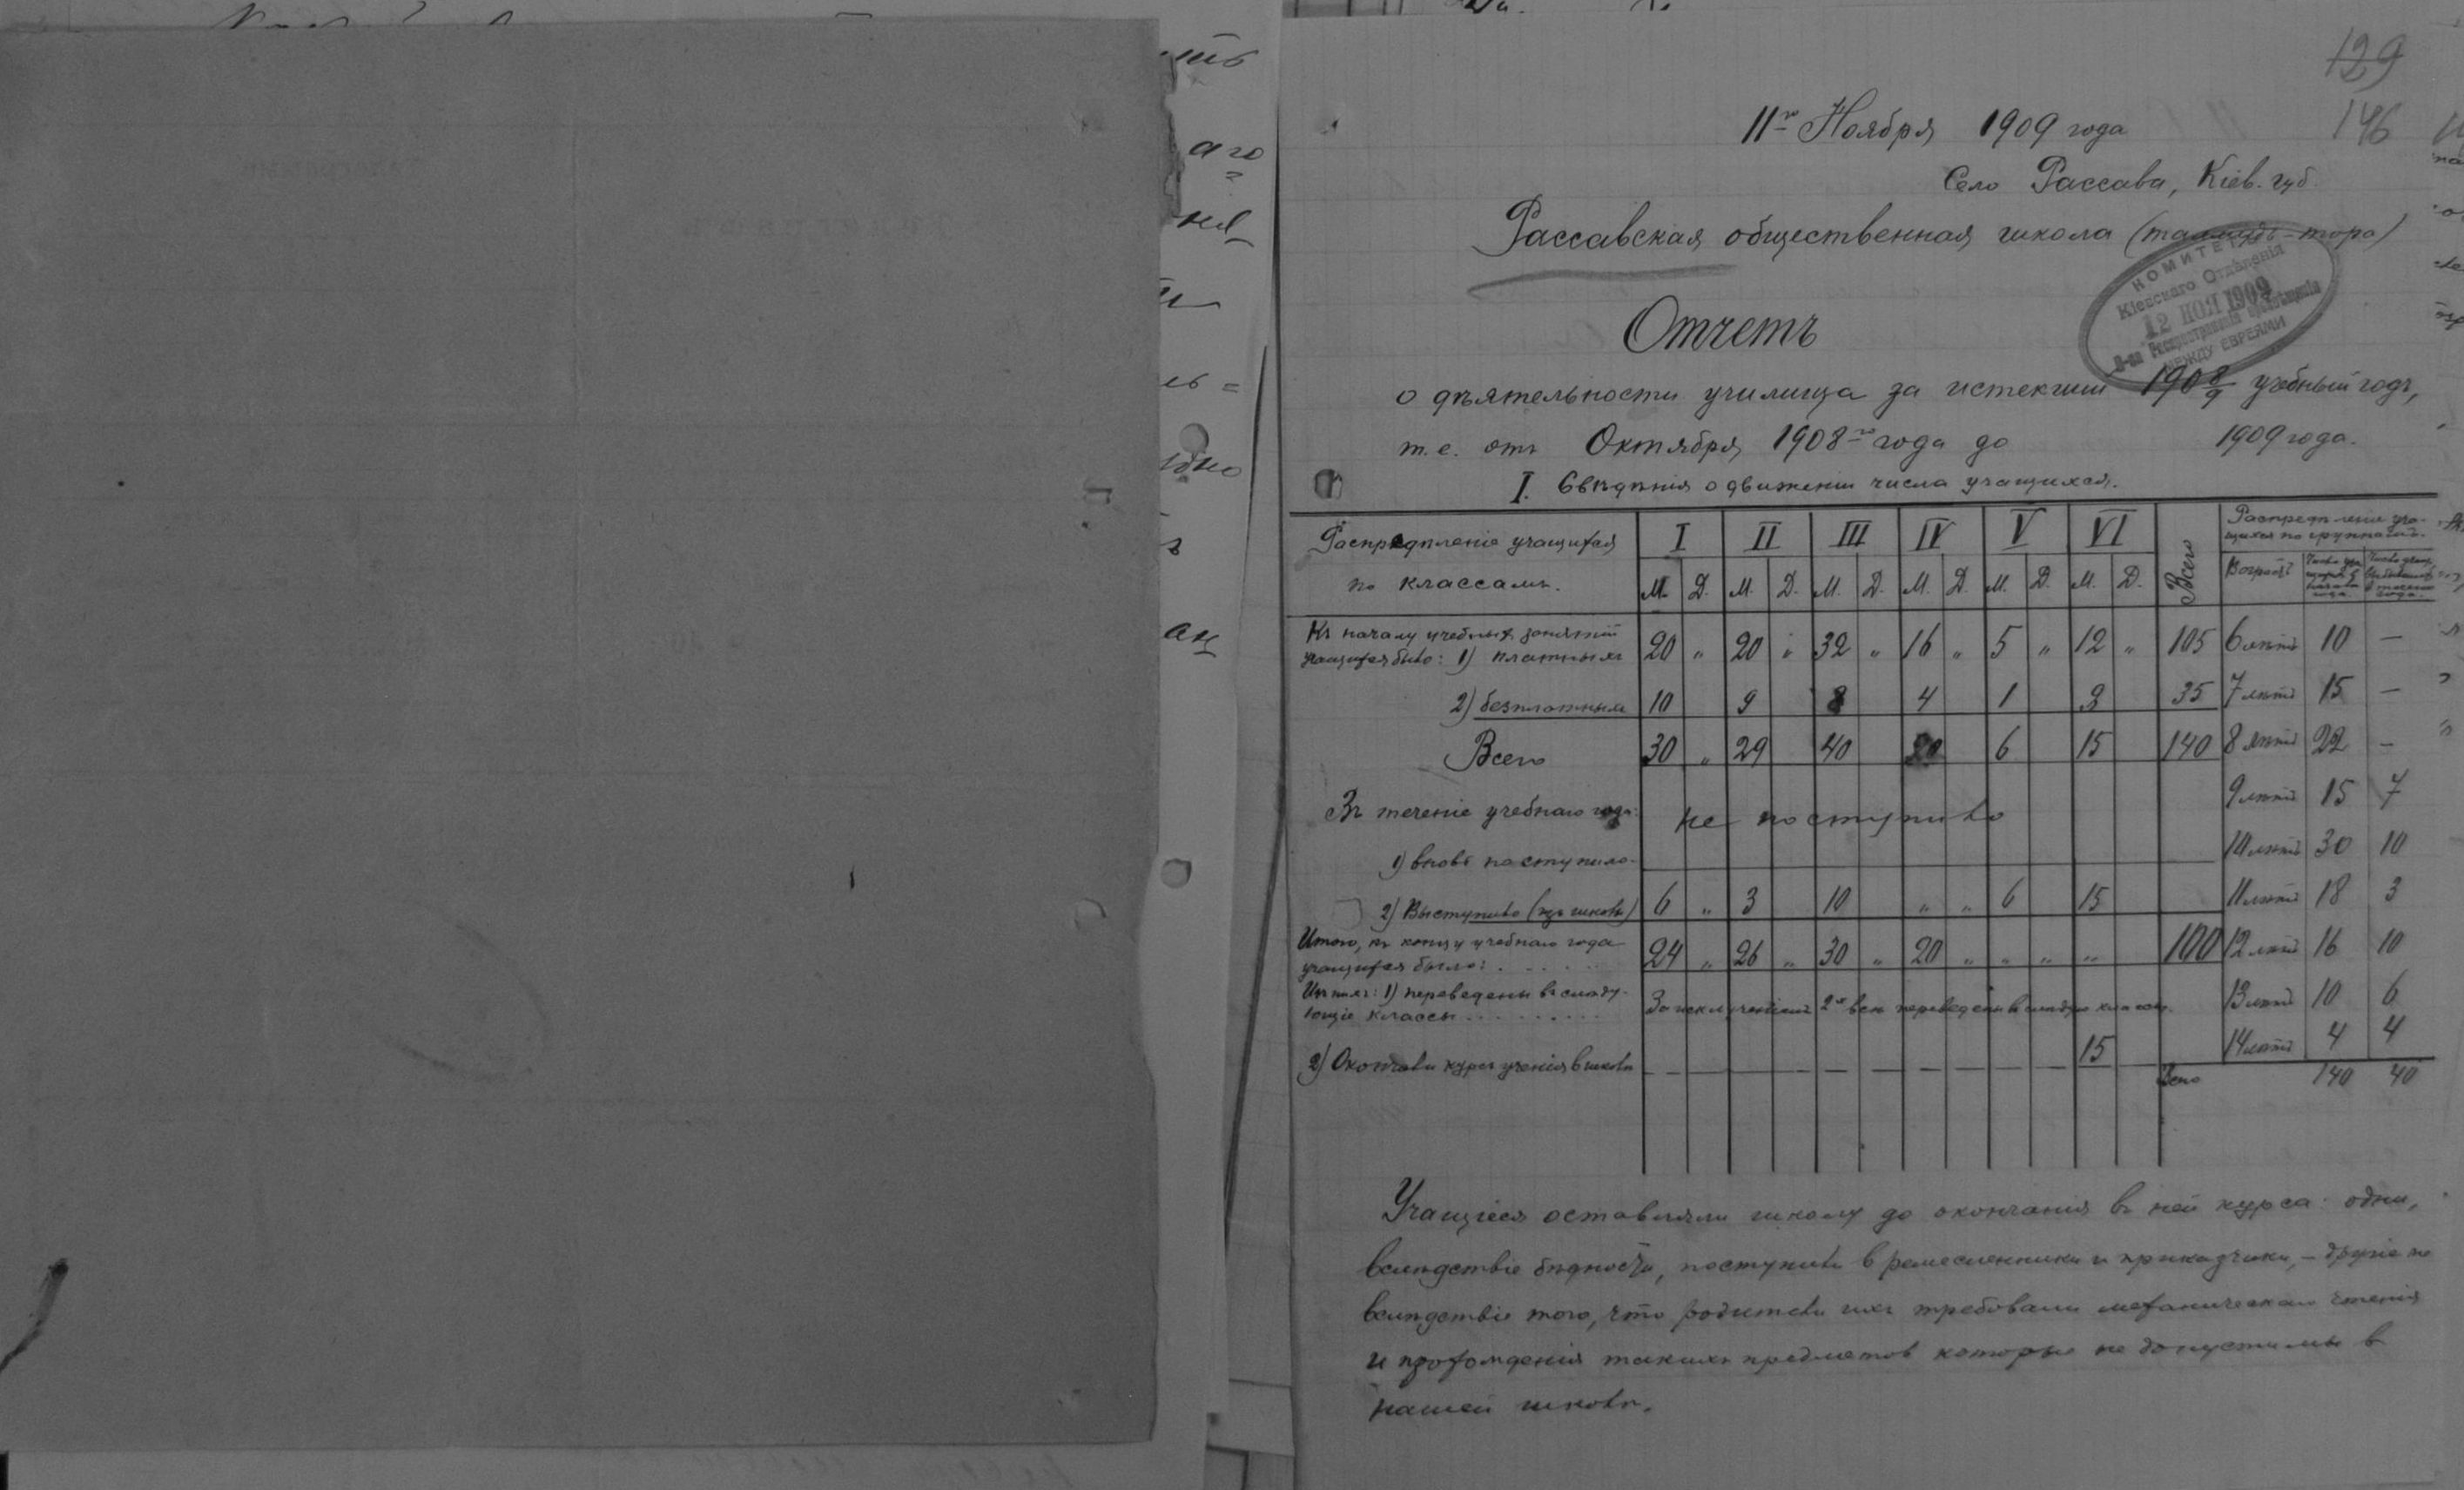 129
146
11го Ноября 1909 года
Село Рассава, Кіев. губ.
Рассавская общественная школа (талмудъ-тора)
КОМИТЕТЪ
Кіевскаго Отдѣленія
12 НОЯ 1909
О-ва Распространенія просвѣщенія
МЕЖДУ ЕВРЕЯМИ
Отчетъ
о дѣятельности училища за истекшій 1908/9 учебный годъ,
т.е. отъ Октября 1908го года до 1909 года.
I. Свѣдѣнія о движеніи числа учащихся.
Распредѣленіе учащихся по классамъ. I II III IV V VI Всего Распредѣленіе уча-
щихся по группамъ.
М. Д. М. Д. М. Д. М. Д. М. Д. М. Д. Возрастъ
Къ началу учебныхъ занятій
учащихся было: 1) платныхъ 20 „ 20 „ 32 „ 16 „ 5 „ 12 „ 105 6 лѣтъ 10 —
2) безплатныхъ 10 9 8 4 1 3 35 7 лѣтъ 15 —
Всего 30 „ 29 40 20 6 15 140 8 лѣтъ 22 —
9 лѣтъ 15 7
Въ теченіе учебнаго года: не поступило
1) вновь поступило 10 лѣтъ 30 10
2) Выступило (изъ школы) 6 „ 3 10 „ „ 6 15 11 лѣтъ 18 3
Итого, къ концу учебнаго года
учащихся было: 24 „ 26 „ 30 „ 20 „ „ „ „ 100 12 лѣтъ 16 10
Изъ нихъ: 1) переведены въ слѣду-
ющіе классы За исключеніемъ 2хъ всѣ переведены въ слѣдую классы. 13 лѣтъ 10 6
2) Окончили курсъ ученія въ школѣ — — — — — — — — — — 15 — 14 лѣтъ 4 4
Всего 140 40
Учащіеся оставляли школу до окончанія въ ней курса: одни,
вслѣдствіе бѣдности, поступили в ремесленники и приказчики, – другіе же
вслѣдствіе того, что родители ихъ требовали механическаго чтенія
и прохожденія такихъ предметов которые не допустимы в
нашей школѣ.